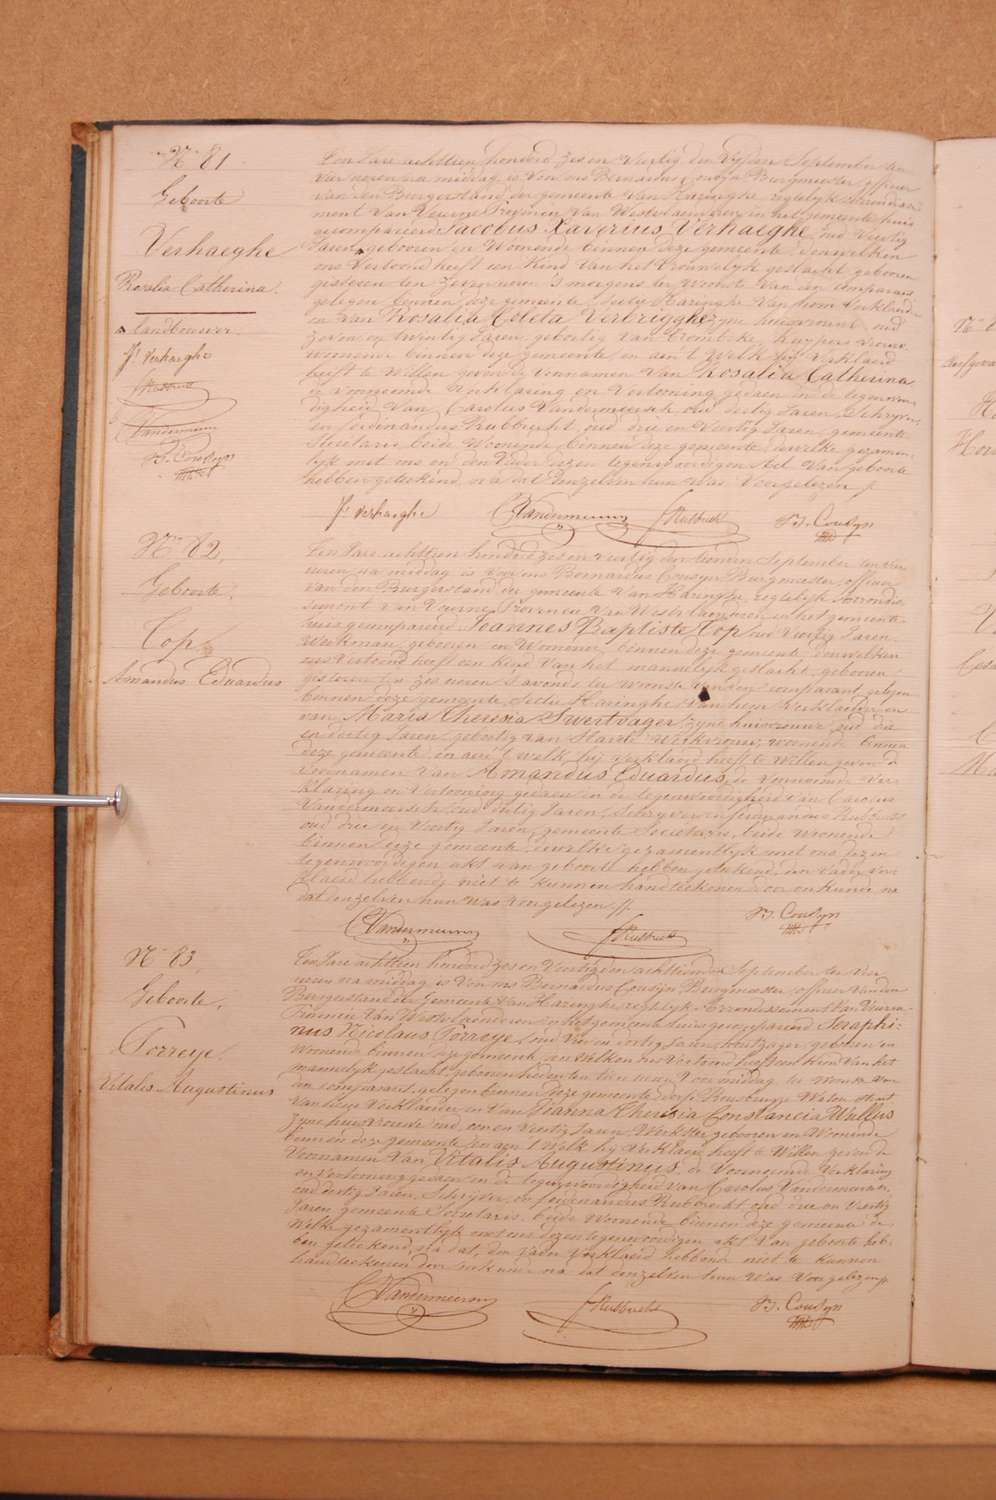 N° 81
Geboorte
Verhaeghe
Rosalia Catherina
landbouwer
J. Verhaeghe
F Rubbrecht
C Vandermeersch
B. Cousyn
Een Jare achttien honderd zes en Veertig den Vyfden September ten
vier uren na middag is Von ons Bernardus Cousyn Burgmeester officier
van den Burgerstand der gemeente Van Haringhe regtelyk arrondisse-
ment Van Veurne Provincie Van Westvlaenderen in het gemeente huis
gecompareerd Jacobus Xaverius Verhaeghe, oud Veertig
Jaren, gebooren en Wonende binnen deze gemeente, denwelken
ons Vertoond heeft een Kind Van het Vrouwelyk geslacht gebooren
gisteren ten Zeven uren 's morgens ter Wonste Van den comparant
gelegen binnen deze gemeente Sectie Haringhe Van hem Verklaerder
en Van Rosalia Coleta Verbrigghe zyne huisvrouw, oud
zeven en twintig Jaren geboortig van Crombeke
wonende binnen deze gemeente en aen 't Welk hy Verklaerd
heeft te Willen geven de Voornamen Van Rosalia Catherina
de Voornoemde Verklaring en Vertooning gedaen in de tegenwoor-
digheid Van Carolus Vandermeersch oud dertig Jaren, Schryver,
en Ferdinandus Rubbrecht, oud drie en Veertig Jaren, gemeente
Secretaris beide Woonende binnen deze gemeente, dewelke gezamen-
lyk met ons en den Vader dezen tegenwoordigen Akt Van geboorte
hebben geteekend, na dat denzelven hun Was Voorgelezen
J. Verhaeghe C Vandermeersch F Rubbrecht B. Cousyn
N° 82
Geboorte
Top
Amandus Eduardus
Een Jare achttien honderd zes en veertig den September ten vier
uren na middag is Voor ons Bernardus Cousyn Burgmeester officier
van den Burgerstand der gemeente Van Haringhe regtelyk Arrondis-
sement van Veurne Provincie Van Westvlaenderen in het gemeente
huis gecompareerd Joannes Baptiste Top, oud Veertig Jaren
Werkman, gebooren en Wonende binnen deze gemeente, denwelken
ons Vertoond heeft een Kind Van het mannelyk geslacht gebooren
gisteren ten zes uren 's avonds ter Wonste van den comparant, gelegen
binnen deze gemeente Sectie Haringhe Van hem Verklaerder en
van Maria Theresia Swertvager zyne huisvrouw, oud drie
en dertig Jaren geboortig van Werkvrouw, woonende binnen
deze gemeente, en aen 't welk hy verklaerd heeft te Willen geven de
Voornamen Van Amandus Eduardus, de Voornoemde Ver-
klaring en Vertooning gedaen in de tegenwoordigheid van Carolus
Vandermeersch oud dertig Jaren, Schryver en Ferdinandus Rubbrecht
oud drie en Veertig Jaren, gemeente Secretaris, beide Wonende
binnen deze gemeente, dewelke gezamentlyk met ons dezen
tegenwoordigen akt van geboorte hebben geteekend, den Vader ver-
klaerd hebbende niet te kunnen handteekenen na
dat denzelven hun was voorgelezen
C Vandermeersch F Rubbrecht B. Cousyn
N° 83
Geboorte
Torreye
Vitalis Augustinus
Een Jare achttien honderd zes en Veertig den achttienden September ten Vier
uren na middag is Von ons Bernardus Cousyn Burgmeester officier Van den
Burgerstand der Gemeente Van Haringhe regtelyk Arrondissement Van Veurne
Provincie Van Westvlaenderen in het gemeente huis gecompareerd Seraphi-
nus Nicolaus Torreye, oud en dertig Jaren, houtzager, gebooren en
Woonende binnen deze gemeente, denwelken ons Vertoond heeft een Kind Van het
mannelyk geslacht gebooren heden ten tien uren Voor middag ter Wonste Van
den comparant, gelegen binnen deze gemeente dorp Rousbrugge Waten straet
Van hem Verklaerder en Van Joanna Theresia Constancia Wullus
zyne huisvrouw oud, een en Veertig Jaren, Werkster gebooren en Wonende
binnen deze gemeente en aen 't Welk hy Verklaerd heeft te Willen geven de
Voornamen Van Vitalis Augustinus, de Voornoemd Verklaring
en vertooning gedaen in de tegenwoordigheid van Carolus Vandermeersch,
oud dertig Jaren, Schryver, en Ferdinandus Rubbrecht oud drie en Veertig
Jaren gemeente Secretaris, beide Wonende binnen deze gemeente de-
Welke gezamentlyk met ons dezen tegenwoordigen akt Van geboorte heb-
ben geteekend, na dat, den Vader Verklaerd hebbende niet te kunnen
handteekenen na dat denzelven hun Was Voorgelezen
C Vandermeersch F Rubbrecht B. Cousyn